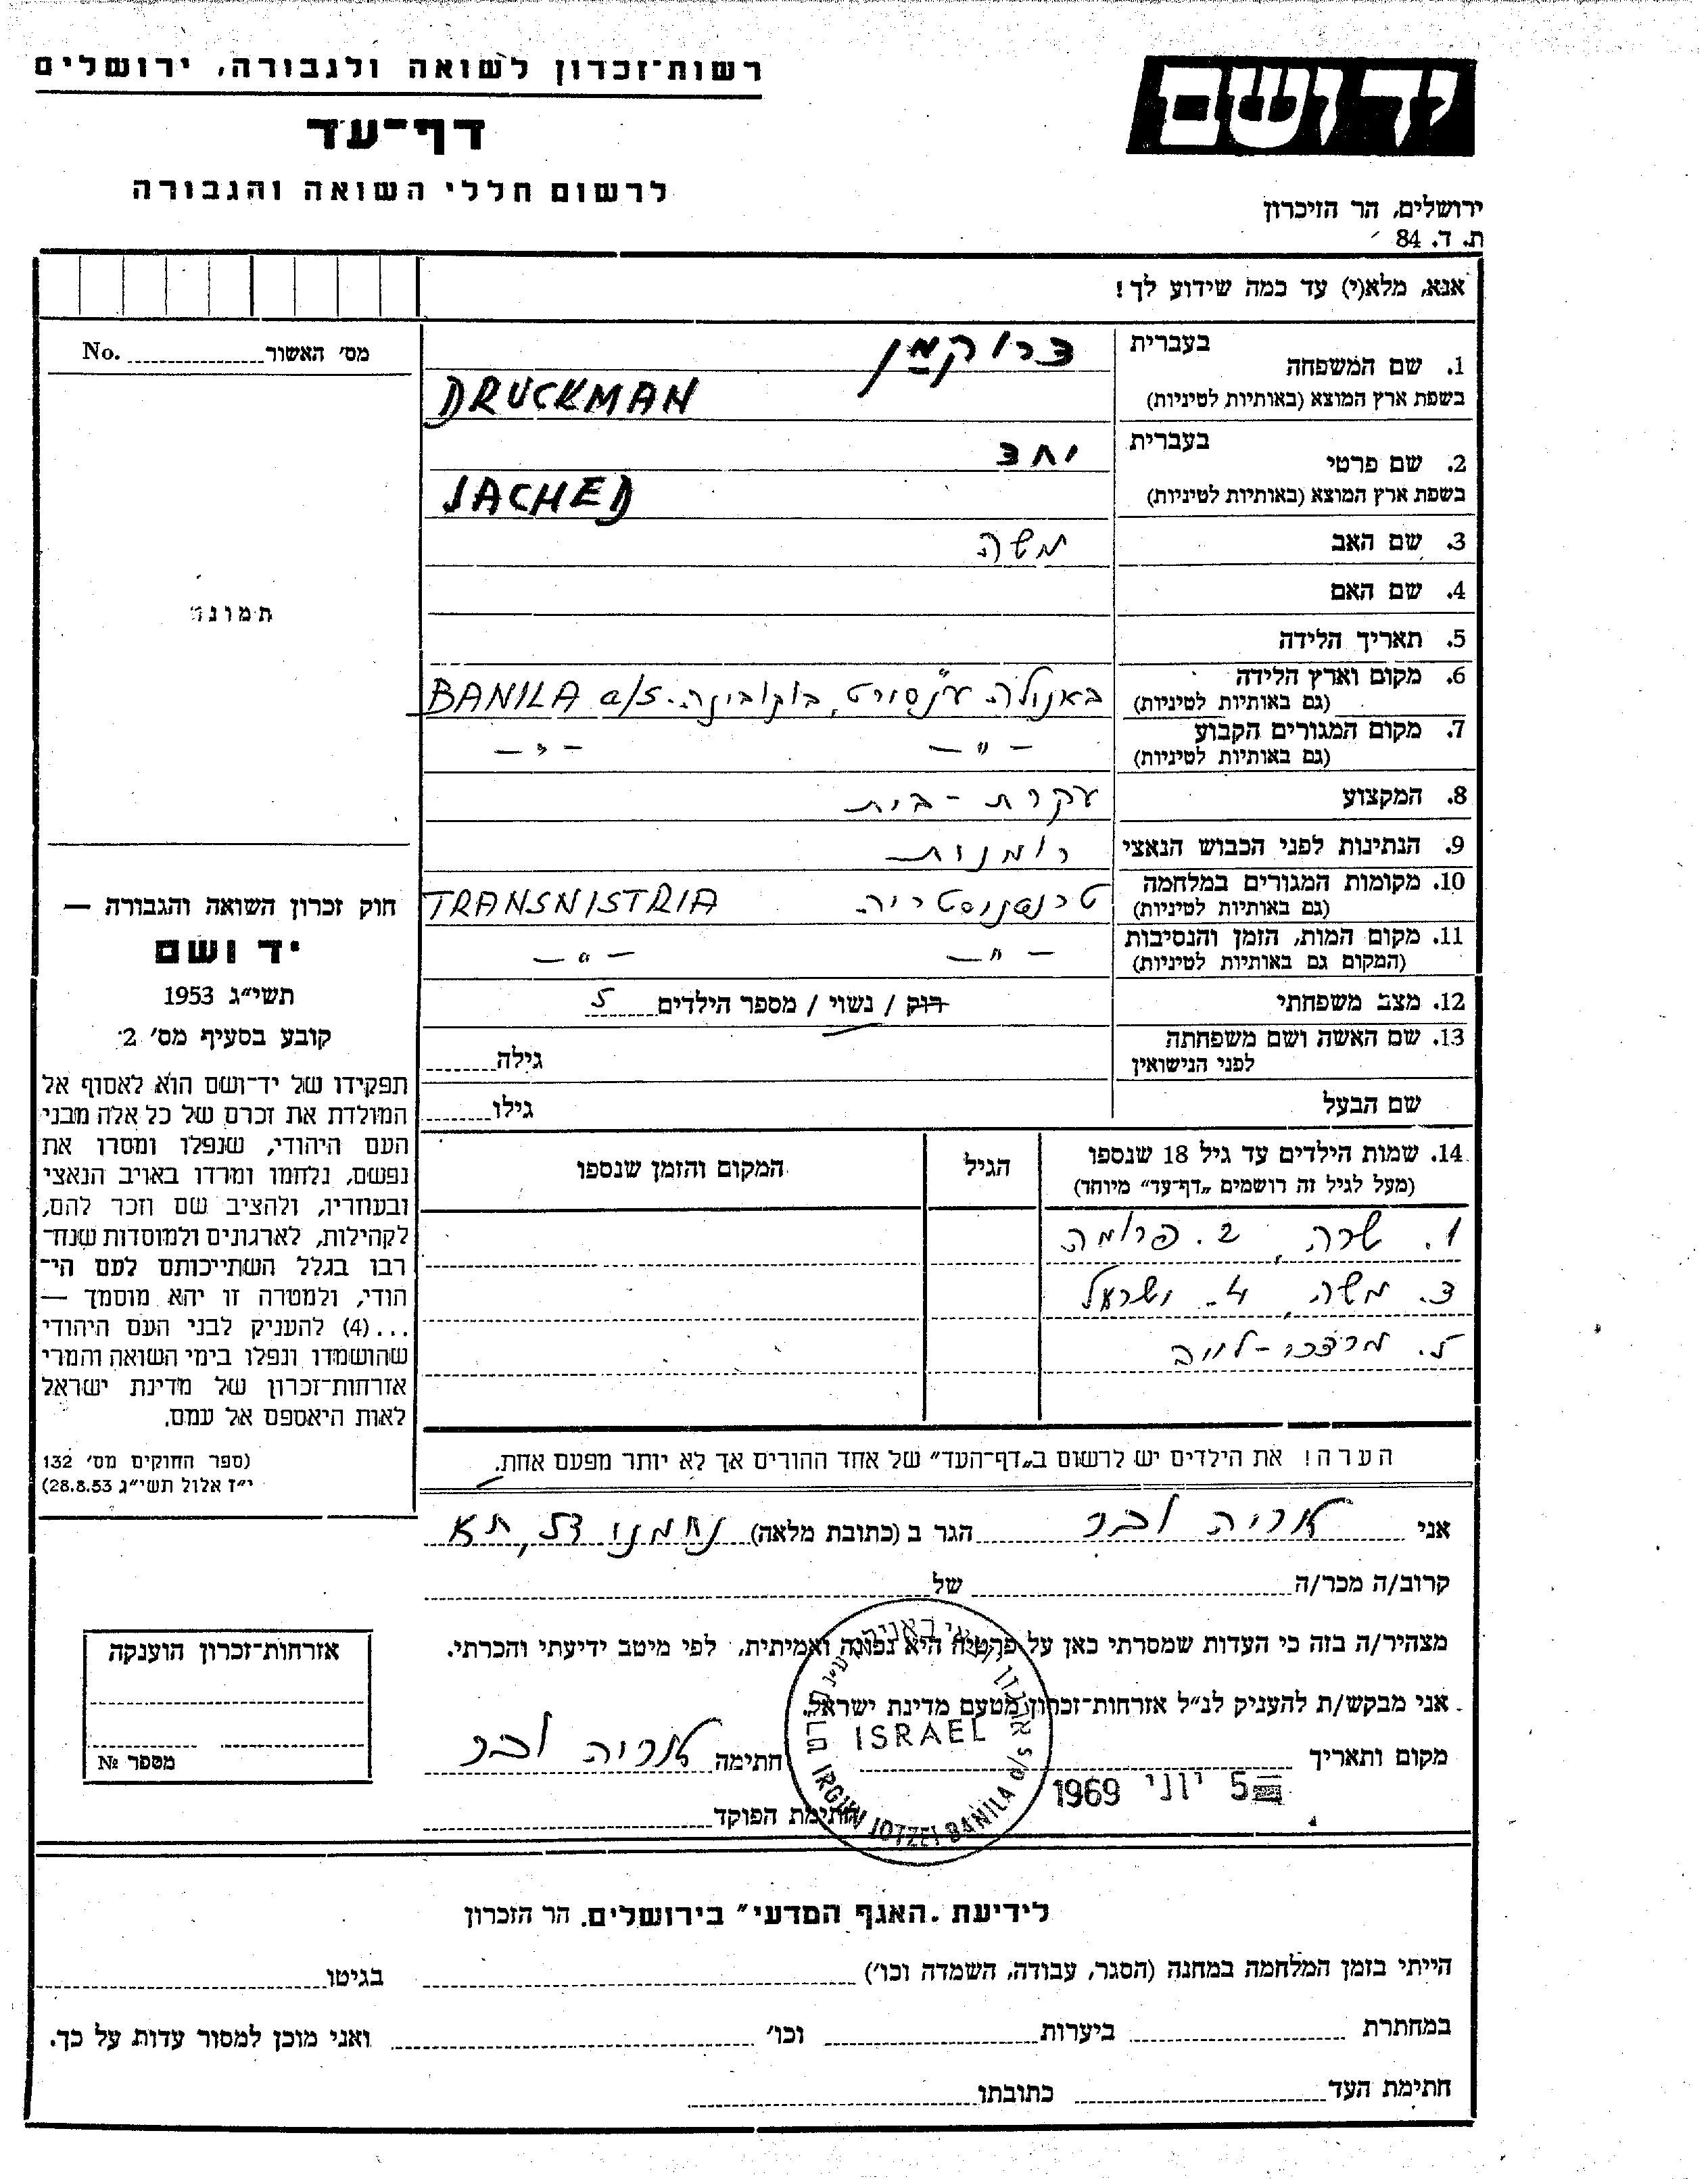 רשות־זכרון לשואה ולגבורה, ירושלים
דף־עד
לרשום חללי השואה והגבורה
יד ושם
ירושלים, הר הזיכרון
ת. ד. 84
אנא, מלא(י) עד כמה שידוע לך!
1. שם המשפחה בעברית דרוקמן
בשפת ארץ המוצא (באותיות לטיניות) DRUCKMAN
2. שם פרטי בעברית יחד
בשפת ארץ המוצא (באותיות לטיניות) JACHED
3. שם האב משה
4. שם האם
5. תאריך הלידה
6. מקום וארץ הלידה (גם באותיות לטיניות) באנילה ע"נ סירט, בוקובינה. BANILA a/S
7. מקום המגורים הקבוע (גם באותיות לטיניות) — " — — " —
8. המקצוע עקרת - בית
9. הנתינות לפני הכבוש הנאצי רומנית
10. מקומות המגורים במלחמה (גם באותיות לטיניות) טרנסניסטריה TRANSNISTRIA
11. מקום המות, הזמן והנסיבות (המקום גם באותיות לטיניות) — " — — " —
12. מצב משפחתי רוק / נשוי / מספר הילדים 5
13. שם האשה ושם משפחתה לפני הנישואין גילה
שם הבעל גילו
14. שמות הילדים עד גיל 18 שנספו הגיל המקום והזמן שנספו
(מעל לגיל זה רושמים „דף־עד” מיוחד)
1. שרה, 2. פרומה
3. משה, 4. ישראל
5. מרדכי - לייב
הערה! את הילדים יש לרשום ב„דף־העד” של אחד ההורים אך לא יותר מפעם אחת.
אני אריה הגר ב (כתובת מלאה) נחמני 52, תא
קרוב/ה מכר/ה של
מצהיר/ה בזה כי העדות שמסרתי כאן על פרטיה היא נכונה ואמיתית, לפי מיטב ידיעתי והכרתי.
אני מבקש/ת להעניק לנ״ל אזרחות־זכרון מטעם מדינת ישראל.
מקום ותאריך 5 יוני 1969 חתימה אריה
חתימת הפוקד
ISRAEL
IRGUN JOTZEI BANILA a/S
No. מס׳ האשור
תמונה
חוק זכרון השואה והגבורה —
יד ושם
תשי״ג 1953
קובע בסעיף מס׳ 2:
תפקידו של יד־ושם הוא לאסוף אל
המולדת את זכרם של כל אלה מבני
העם היהודי, שנפלו ומסרו את
נפשם, נלחמו ומרדו באויב הנאצי
ובעוזריו, ולהציב שם וזכר להם,
לקהילות, לארגונים ולמוסדות שנח־
רבו בגלל השתייכותם לעם הי־
הודי, ולמטרה זו יהא מוסמך —
...(4) להעניק לבני העם היהודי
שהושמדו ונפלו בימי השואה והמרי
אזרחות־זכרון של מדינת ישראל
לאות היאספם אל עמם.
(ספר החוקים מס׳ 132
י״ז אלול תשי״ג 28.8.53)
אזרחות־זכרון הוענקה
מספר №
לידיעת „האגף המדעי” בירושלים. הר הזכרון
הייתי בזמן המלחמה במחנה (הסגר, עבודה, השמדה וכו׳) בגיטו
במחתרת ביערות וכו׳ ואני מוכן למסור עדות על כך.
חתימת העד כתובתו